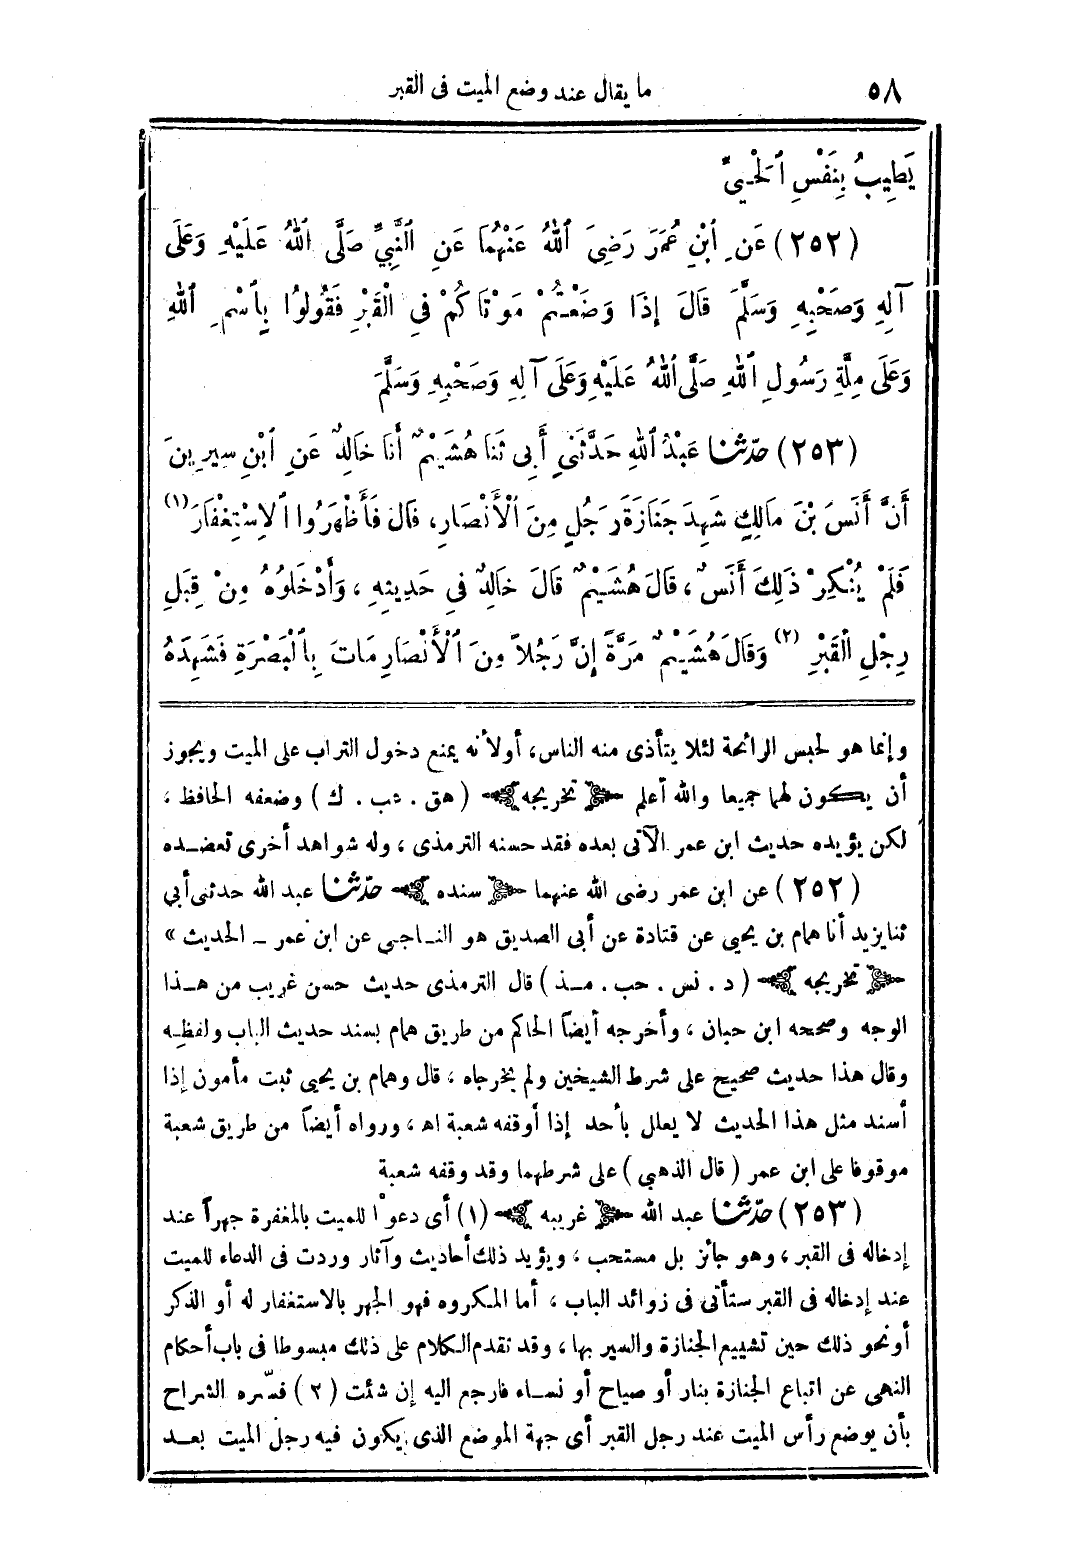 ٥٨ ما يقال عند وضع الميت فى القبر
يَطِيبُ بِنَفْسِ ٱلْحَيِّ
(٢٥٢) عَنِ ٱبْنِ عُمَرَ رَضِيَ ٱللهُ عَنْهُمَا عَنِ ٱلنَّبِيِّ صَلَّى ٱللهُ عَلَيْهِ وَعَلَى
آلِهِ وَصَحْبِهِ وَسَلَّمَ قَالَ إِذَا وَضَعْتُمْ مَوْتَاكُمْ فِي الْقَبْرِ فَقُولُوا بِٱسْمِ ٱللهِ
وَعَلَى مِلَّةِ رَسُولِ ٱللهِ صَلَّى ٱللهُ عَلَيْهِ وَعَلَى آلِهِ وَصَحْبِهِ وَسَلَّمَ
(٢٥٣) حَدَّثَنَا عَبْدُ ٱللهِ حَدَّثَنِي أَبِى ثَنَا هُشَيْمٌ أَنَا خَالِدٌ عَنِ ٱبْنِ سِيرِينَ
أَنَّ أَنَسَ بْنَ مَالِكٍ شَهِدَ جَنَازَةَ رَجُلٍ مِنَ ٱلْأَنْصَارِ، قَالَ فَأَظْهَرُوا ٱلِاسْتِغْفَارَ (١)
فَلَمْ يُنْكِرْ ذَلِكَ أَنَسٌ، قَالَ هُشَيْمٌ قَالَ خَالِدٌ فِي حَدِيثِهِ، وَأَدْخَلُوهُ مِنْ قِبَلِ
رِجْلِ ٱلْقَبْرِ (٢) وَقَالَ هُشَيْمٌ مَرَّةً إِنَّ رَجُلاً مِنَ ٱلْأَنْصَارِ مَاتَ بِٱلْبَصْرَةِ فَشَهِدَهُ
وإنما هو لحبس الرائحة لئلا يتأذى منه الناس، أولأنه يمنع دخول التراب على الميت ويجوز
أن يكون لهما جميعا والله أعلم ﴿ تخريجه ﴾ ( هق . عب . ك ) وضعفه الحافظ ،
لكن يؤيده حديث ابن عمر الآتى بعده فقد حسنه الترمذى ، وله شواهد أخرى تعضده
(٢٥٢) عن ابن عمر رضى الله عنهما ﴿ سنده ﴾ حدّثنا عبد الله حدثنى أبي
ثنا يزيد أنا همام بن يحيى عن قتادة عن أبى الصديق هو الناجى عن ابن عمر ــ الحديث »
﴿ تخريجه ﴾ ( د . نس . حب . مذ ) قال الترمذى حديث حسن غريب من هذا
الوجه وصححه ابن حبان ، وأخرجه أيضاً الحاكم من طريق همام بسند حديث الباب ولفظه
وقال هذا حديث صحيح على شرط الشيخين ولم يخرجاه ، قال وهمام بن يحيى ثبت مأمون إذا
أسند مثل هذا الحديث لا يعلل بأحد إذا أوقفه شعبة اه ، ورواه أيضاً من طريق شعبة
موقوفا على ابن عمر ( قال الذهبي ) على شرطهما وقد وقفه شعبة
(٢٥٣) حدّثنا عبد الله ﴿ غريبه ﴾ (١) أى دعوْا للميت بالمغفرة جهراً عند
إدخاله فى القبر ، وهو جائز بل مستحب ، ويؤيد ذلك أحاديث وآثار وردت فى الدعاء للميت
عند إدخاله فى القبر ستأتى فى زوائد الباب ، أما المكروه فهو الجهر بالاستغفار له أو الذكر
أونحو ذلك حين تشييع الجنازة والسير بها ، وقد تقدم الكلام على ذلك مبسوطا فى باب أحكام
النهى عن اتباع الجنازة بنار أو صياح أو نساء فارجع اليه إن شئت (٢) فسّره الشراح
بأن يوضع رأس الميت عند رجل القبر أى جهة الموضع الذى يكون فيه رجل الميت بعد